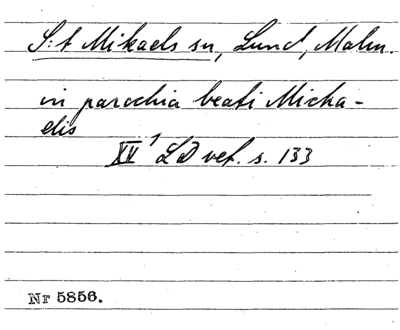 S:t Mikaels sn, Lund, Malm.
in parochia beati Micha-
elis
XV¹ LD vet. s. 133
Nr 5856.